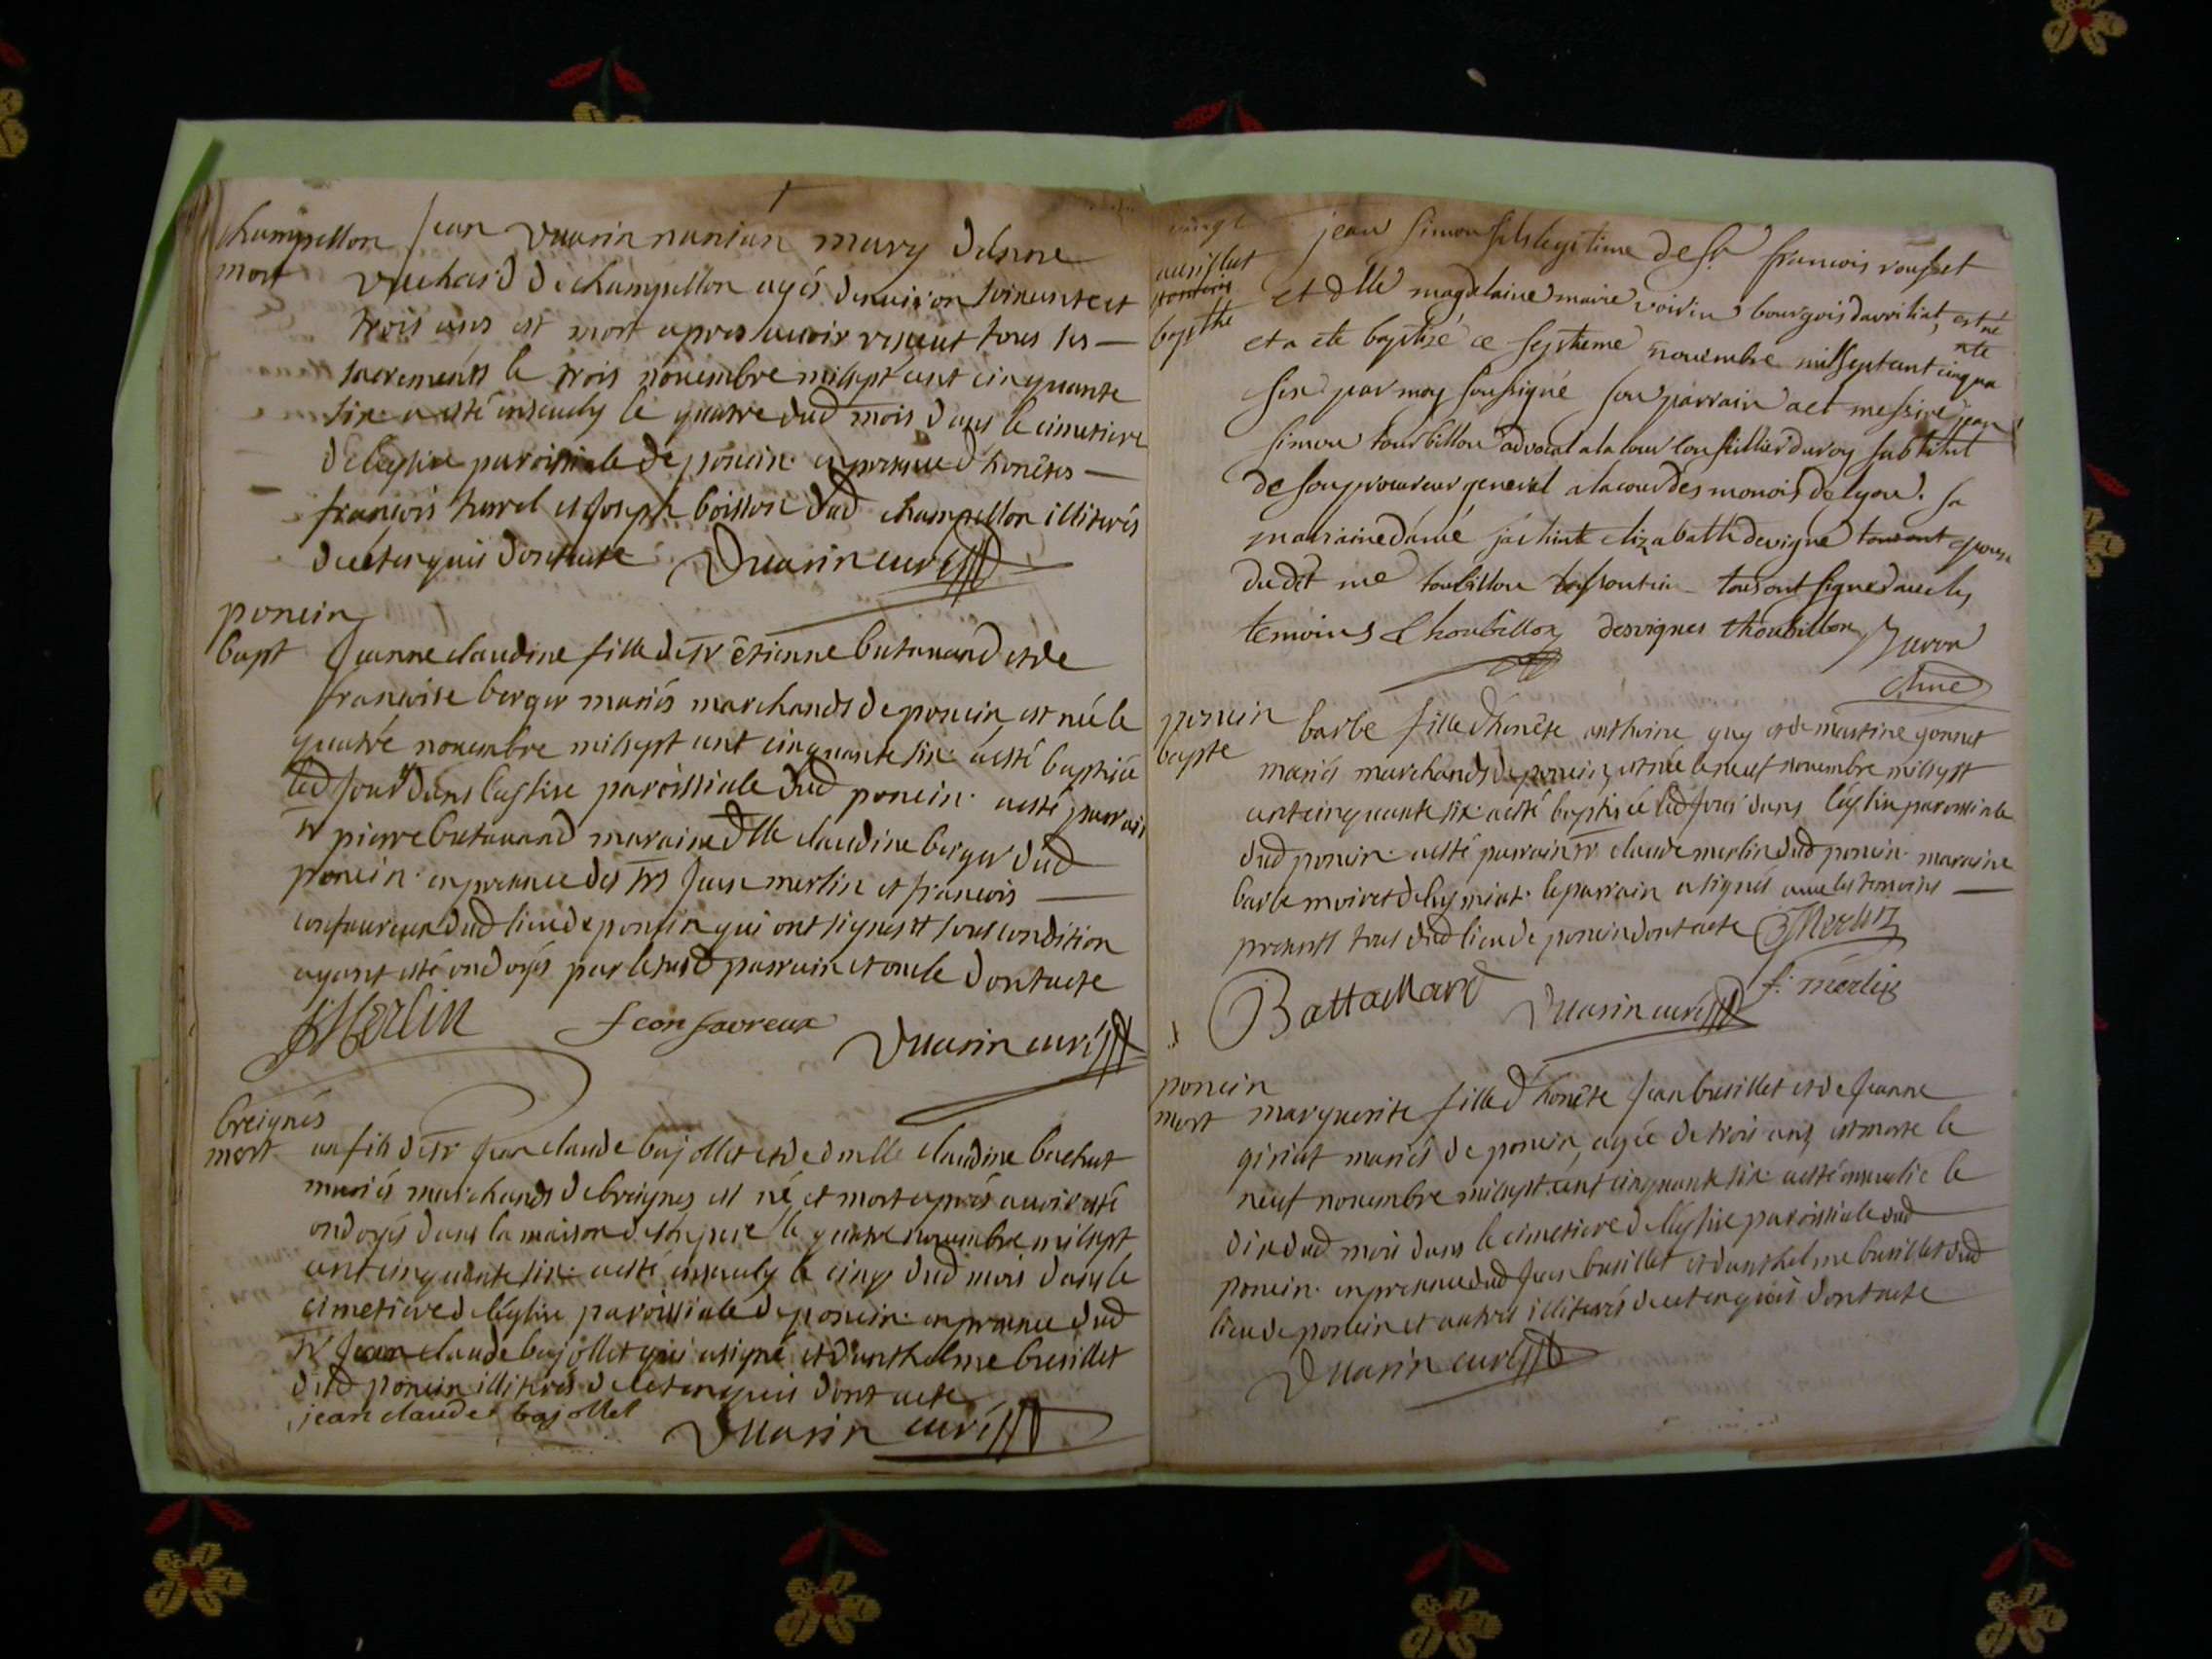 champellon
mort
jean vuarin nantuas mary d'etienne
vuchard de champellon agés denviron soixante et
trois ans est mort apres avoir reseut tous ses
sacrements le trois novembre milsept cent cinquante
six a esté enseuly le quatre dud mois dans le cimetiere
de leglise paroissiale de poncin en presence d honêtes
francois terrel et joseph boisson dud champellon illiterés
de ce enquis dont acte Duarin curé
poncin
bapt
Jeanne claudine fille de sr étienne batauard et de
francoise berger mariés marchands de poncin est née le
quatre novembre milsept cent cinquante six a esté baptisée
led jour dans leglise paroissiale dud poncin a esté parrain
sr pierre batauard maraine dlle claudine berger dud
poncin en presence des srs jean merlin et francois
confavreux dud lieu de poncin qui ont signes et sous condition
ayant esté ondoyés par le susd parrain et oncle dont acte
J Merlin f confavreux Duarin curé
breignés
mort
un fils de sr jean claude bajollet et de dmlle claudine bachut
mariés marchands de breignes est né et mort apres avoir esté
ondoyés dans la maison de son pere le quatre novembre milsept
cent cinquante six a esté enseuly le cinq dud mois dans le
cimetiere de leglise paroissiale de poncin en presence dud
sr jean claude bajollet qui a signé et d'anthelme bresillet
dud poncin illiterés de ce enquis dont acte
jean claude bajollet Duarin curé
bapthe
jean simon fils legitime de sr francois rousset
et dlle magdelaine marie voisin bourgois davrilliat, est né
et a ete baptizé ce septieme novembre mil sept cent cinqua nte
six par moy soussigné son parrain a et messire jean
simon tourbillon advocat a la cour conseillier du roy subtitut
de son procureur general a la cour des monois de lyon. sa
marraine dame jachinte elizabath devigne tous ont epouse
dudit me tourbillon tous ont signé avec les
temoins thoubillon desvignes thoubillon Juvon
poncin
bapte
barbe fille d honête anthoine guy et de martine gonnet
mariés marchands de poncin, est née le neuf novembre milsept
cent cinquante six a esté baptisée led jour dans léglise paroissiale
dud poncin a esté parrain sr claude merlin dud poncin maraine
barbe moiret de leymiat le parrain a signés avec les temoins
presents tous dud lieu de poncin dont acte C Merlin
Battallard Duarin curé f. merlin
poncin
mort
marguerite fille d honête jean bresillet et de jeanne
giriat mariés de poncin, agée de trois ans, est morte le
neuf novembre milsept cent cinquante six a esté enseulie le
dix dud mois dans le cimetiere de léglise paroissiale dud
poncin en presence dud jean bresillet et d'anthelme bresillet dud
lieu de poncin et autres illiterés de ce enquis dont acte
Duarin curé